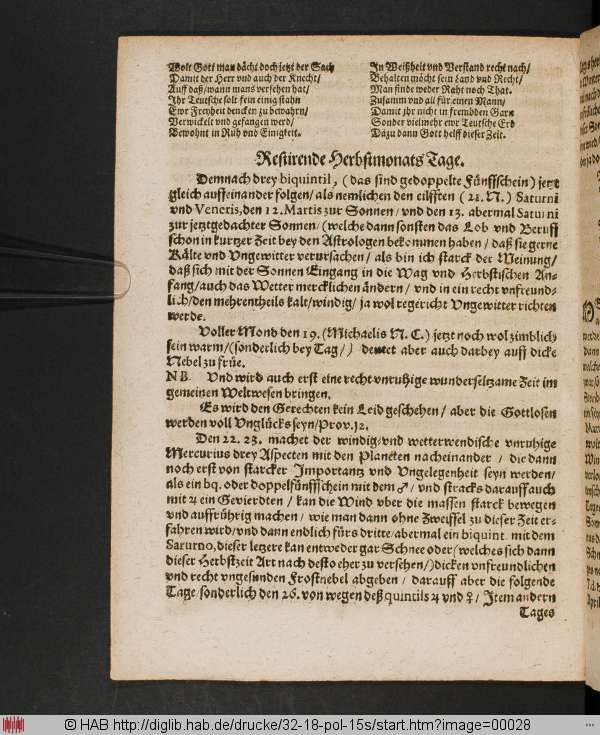 Wolt Gott man dächt doch jetzt der Sach
Damit der Herr vnd auch der Knecht/
Auff daß/wann mans versehen hat/
Ihr Teutsche solt fein einig stahn
Ewr Freyheit dencken zu bewahrn/
Verwickelt vnd gefangen werd/
Bewohnt in Rüh vnd Einigkeit.
In Weißheit vnd Verstand recht nach/
Behalten möcht sein Land vnd Recht/
Man finde weder Raht noch That.
Zusamm vnd all für einen Mann/
Damit jhr nicht in frembden Garn
Sonder vielmehr ewr Teutsche Erd
Dazu dann Gott helff dieser Zeit.
Restirende Herbstmonats Tage.
Demnach drey biquintil, (das sind gedoppelte Fünffschein) jetzt
gleich auff einander folgen/als nemlichen den eilfften (21. N.) Saturni
vnd Veneris, den 12. Martis zur Sonnen/vnd den 13. abermal Saturni
zur jetztgedachter Sonnen/(welche dann sonsten das Lob vnd Beruff
schon in kurtzer Zeit bey den Astrologen bekommen haben/ daß sie gerne
Kälte vnd Vngewitter verursachen/ als bin ich starck der Meinung/
daß sich mit der Sonnen Eingang in die Wag vnd Herbstischen An-
fang/auch das Wetter mercklichen ändern/ vnd in ein recht vnfreund-
lich/den mehrentheils kalt/windig/ ja wol regericht Vngewitter richten
werde.
Voller Mond den 19. (Michaelis N. C.) jetzt noch wol zimblich
fein warm/(sonderlich bey Tag/) deutet aber auch darbey auff dicke
Nebel zu früe.
NB. Vnd wird auch erst eine recht vnruhige wunderseltzame Zeit im
gemeinen Weltwesen bringen.
Es wird den Gerechten kein Leid geschehen/ aber die Gottlosen
werden voll Vnglücks seyn/Prov.12.
Den 22. 23. machet der windig/vnd wetterwendische vnruhige
Mercurius drey Aspecten mit den Planeten nacheinander / die dann
noch erst von starcker Importantz vnd Vngelegenheit seyn werden/
als ein bq. oder doppelfünffschein mit dem ♂/ vnd stracks darauff auch
mit ♃ ein Gevierdten / kan die Wind vber die massen starck bewegen
vnd auffrührig machen/ wie man dann ohne Zweiffel zu dieser Zeit er-
fahren wird/vnd dann endlich fürs dritte/abermal ein biquint. mit dem
Saturno, dieser letzere kan entweder gar Schnee oder (welches sich dann
dieser Herbstzeit Art nach desto eher zu versehen/) dicken vnfreundlichen
vnd recht vngesunden Frostnebel abgeben / darauff aber die folgende
Tage sonderlich den 26. von wegen deß quintils ♃ vnd ♀/ Item andern
Tages
© HAB http://diglib.hab.de/drucke/32-18-pol-15s/start.htm?image=00028